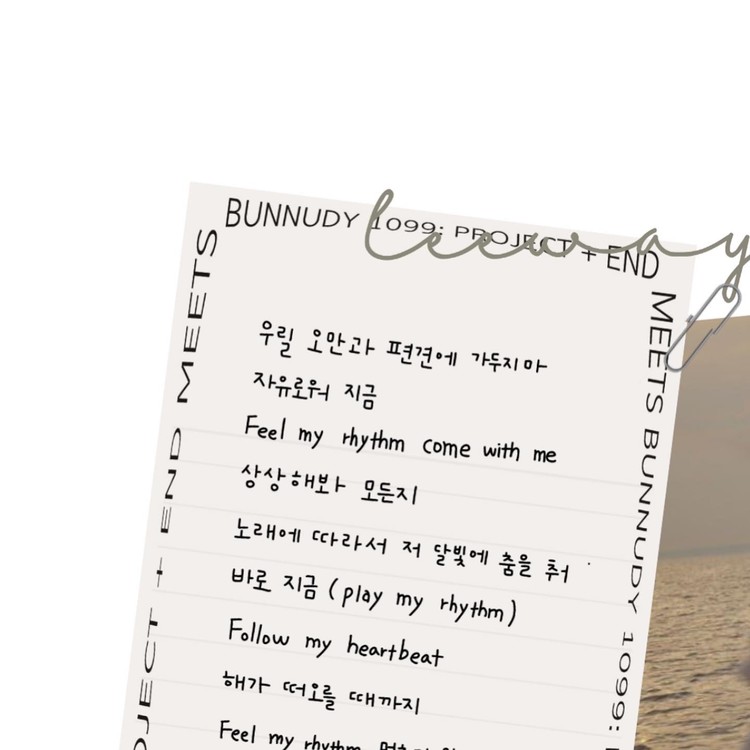 leeway
BUNNUDY 1099: PROJECT + END
MEETS
MEETS BUNNUDY 1099:
PROJECT + END MEETS
우릴 오만과 편견에 가두지마
자유로워 지금
Feel my rhythm come with me
상상해봐 모든지
노래에 따라서 저 달빛에 춤을 춰
바로 지금 (play my rhythm)
Follow my heartbeat
해가 떠오를 때까지
Feel my rhythm